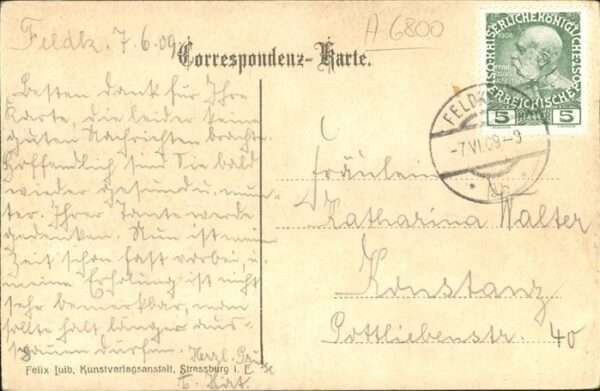 Feldk. 7.6.09.
A-6800
Correspondenz-Karte.
Besten dank für Ihre
Karte, die leider keine
guten Nachrichten brachte.
Hoffendlich sind Sie bald
wieder gesund u. mun-
ter. Ihrer Tante werde
gedenken. Nun ist mein
Zeit schon fast vorbei, u.
meine Erholung ist nicht
sehr bemerkbar, man
sollte halt länger aus-
spannen dürfen.
Herzl.
Fräulein
Katharina Walter
Konstanz
Gottliebenstr. 40
KAISERLICHE KÖNIGLICHE
ÖSTERREICHISCHE
5 HELLER 5
FELDK
-7.VI.09-9
Felix Luib, Kunstverlagsanstalt, Strassburg i. E.